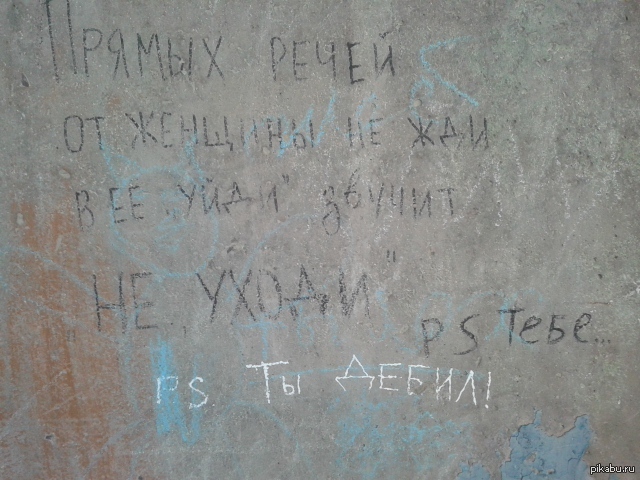 ПРЯМЫХ РЕЧЕЙ
ОТ ЖЕНЩИНЫ НЕ ЖДИ
В ЕЕ „УЙДИ" ЗВУЧИТ
„НЕ УХОДИ"
PS Тебе...
P.S. Ты ДЕБИЛ!
pikabu.ru